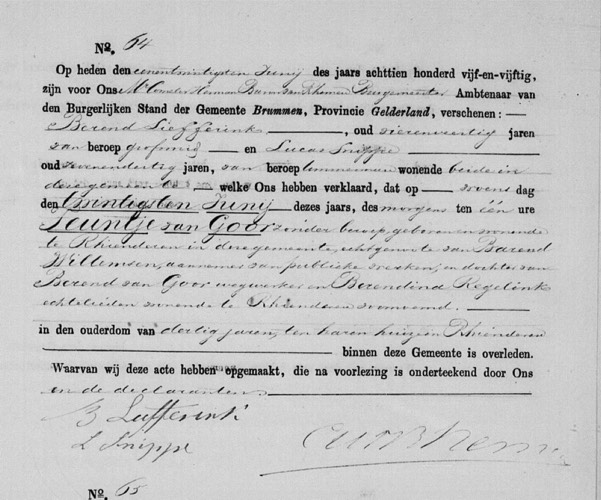 No. 64
Op heden den eenentwintigsten Junij des jaars achttien honderd vijf-en-vijftig,
zijn voor Ons Mr Cornelis Herman Baron van Rhemen Burgemeester Ambtenaar van
den Burgerlijken Stand der Gemeente Brummen, Provincie Gelderland, verschenen: —
Berend Liefferink, oud vierenveertig jaren
van beroep grofsmid en Lucas Snippe
oud zevenendertig jaren, van beroep timmerman wonende beide in
deze gemeente, welke Ons hebben verklaard, dat op — woens dag
den twintigsten Junij dezes jaars, des morgens ten één ure
Leuntje van Goor zonder beroep, geboren en wonende
te Rhienderen in deze gemeente, echtgenoote van Barend
Willemsen, aannemer van publieke werken, en dochter van
Berend van Goor wegwerker en Berendina Regelink
echtelieden wonende te Rhienderen voornoemd. —
in den ouderdom van dertig jaren, ten haren huize in Rhienderen
binnen deze Gemeente is overleden.
Waarvan wij deze acte hebben opgemaakt, die na voorlezing is onderteekend door Ons
en de declaranten
B Liefferink
L Snippe
No. 65